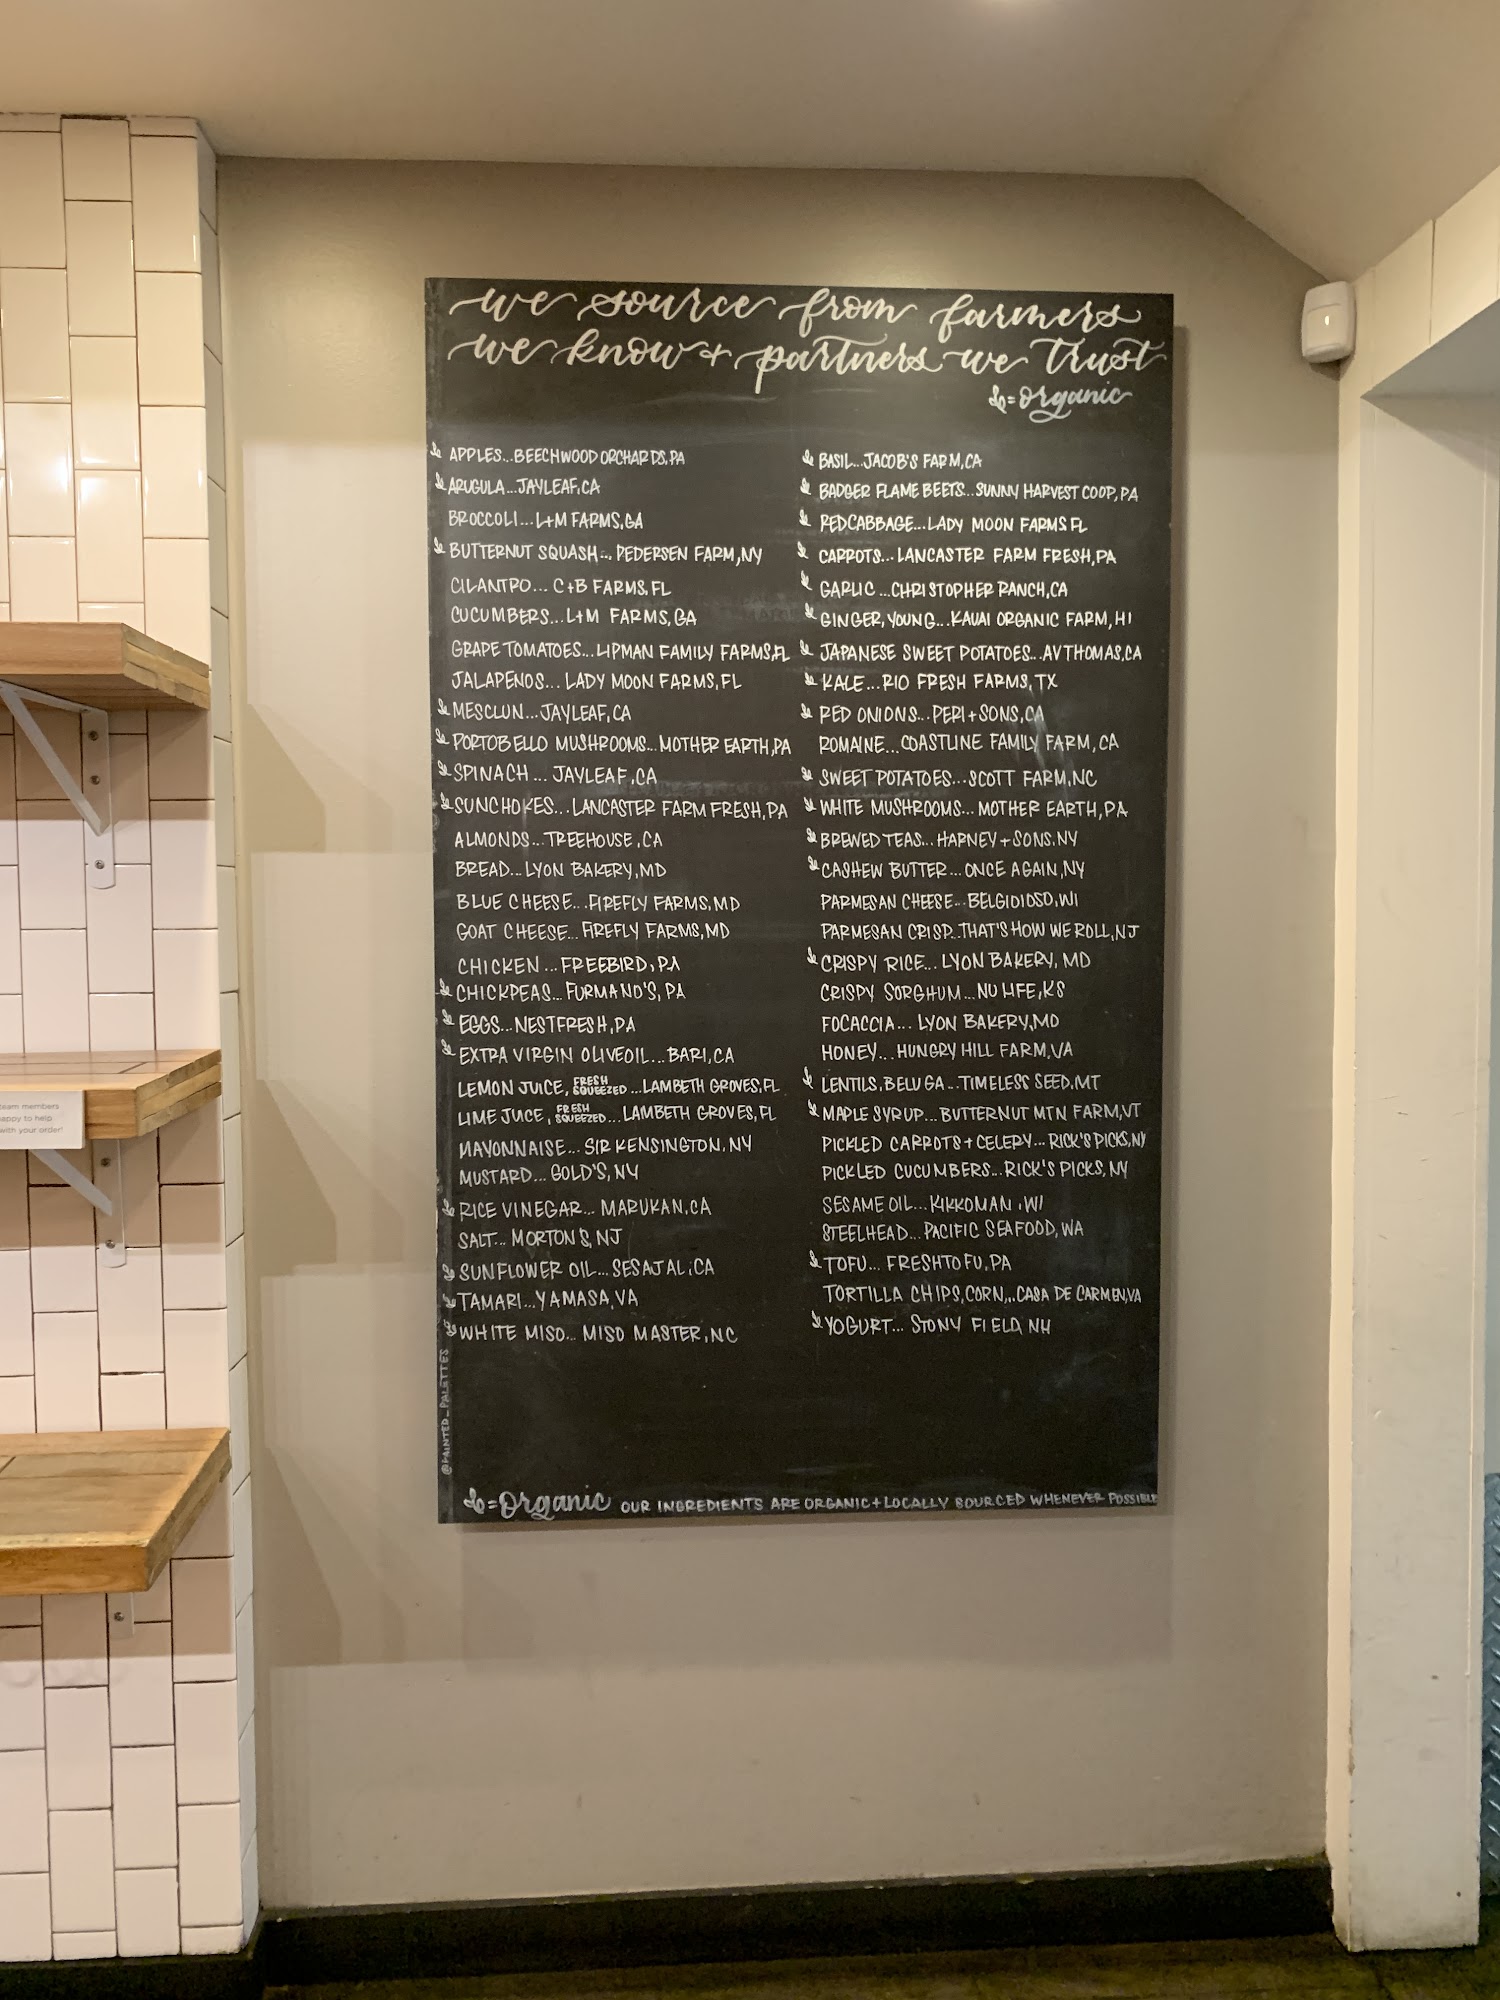 we source from farmers
we know + partners we trust
= organic
APPLES...BEECHWOOD ORCHARDS,PA
ARUGULA...JAYLEAF,CA
BROCCOLI...L+M FARMS,GA
BUTTERNUT SQUASH... PEDERSEN FARM,NY
CILANTRO... C+B FARMS,FL
CUCUMBERS...L+M FARMS,GA
GRAPE TOMATOES...LIPMAN FAMILY FARMS,FL
JALAPENOS... LADY MOON FARMS,FL
MESCLUN...JAYLEAF,CA
PORTOBELLO MUSHROOMS...MOTHER EARTH,PA
SPINACH... JAYLEAF,CA
SUNCHOKES...LANCASTER FARM FRESH,PA
ALMONDS...TREEHOUSE,CA
BREAD...LYON BAKERY,MD
BLUE CHEESE...FIREFLY FARMS,MD
GOAT CHEESE...FIREFLY FARMS,MD
CHICKEN...FREEBIRD,PA
CHICKPEAS...FURMANO'S,PA
EGGS...NESTFRESH,PA
EXTRA VIRGIN OLIVE OIL...BARI,CA
LEMON JUICE, FRESH SQUEEZED...LAMBETH GROVES,FL
LIME JUICE, FRESH SQUEEZED...LAMBETH GROVES,FL
MAYONNAISE...SIR KENSINGTON,NY
MUSTARD...GOLD'S,NY
RICE VINEGAR...MARUKAN,CA
SALT...MORTONS,NJ
SUNFLOWER OIL...SESAJAL,CA
TAMARI...YAMASA,VA
WHITE MISO...MISO MASTER,NC
BASIL...JACOB'S FARM,CA
BADGER FLAME BEETS...SUNNY HARVEST COOP,PA
RED CABBAGE...LADY MOON FARMS FL
CARROTS...LANCASTER FARM FRESH,PA
GARLIC...CHRISTOPHER RANCH,CA
GINGER,YOUNG...KAUAI ORGANIC FARM,HI
JAPANESE SWEET POTATOES...AV THOMAS,CA
KALE...RIO FRESH FARMS,TX
RED ONIONS...PERI+SONS,CA
ROMAINE...COASTLINE FAMILY FARM,CA
SWEET POTATOES...SCOTT FARM,NC
WHITE MUSHROOMS...MOTHER EARTH,PA
BREWED TEAS...HARNEY+SONS.NY
CASHEW BUTTER...ONCE AGAIN,NY
PARMESAN CHEESE...BELGIOIOSO,WI
PARMESAN CRISP...THAT'S HOW WE ROLL,NJ
CRISPY RICE...LYON BAKERY, MD
CRISPY SORGHUM...NU LIFE,KS
FOCACCIA...LYON BAKERY,MD
HONEY...HUNGRY HILL FARM,VA
LENTILS,BELUGA...TIMELESS SEED,MT
MAPLE SYRUP...BUTTERNUT MTN FARM,VT
PICKLED CARROTS+CELERY...RICK'S PICKS,NY
PICKLED CUCUMBERS...RICK'S PICKS, NY
SESAME OIL...KIKKOMAN,WI
STEELHEAD...PACIFIC SEAFOOD,WA
TOFU...FRESHTOFU,PA
TORTILLA CHIPS,CORN...CASA DE CARMEN,VA
YOGURT...STONY FIELD, NH
@PAINTED_PALETTES
= Organic OUR INGREDIENTS ARE ORGANIC+LOCALLY SOURCED WHENEVER POSSIBLE
team members
happy to help
with your order!